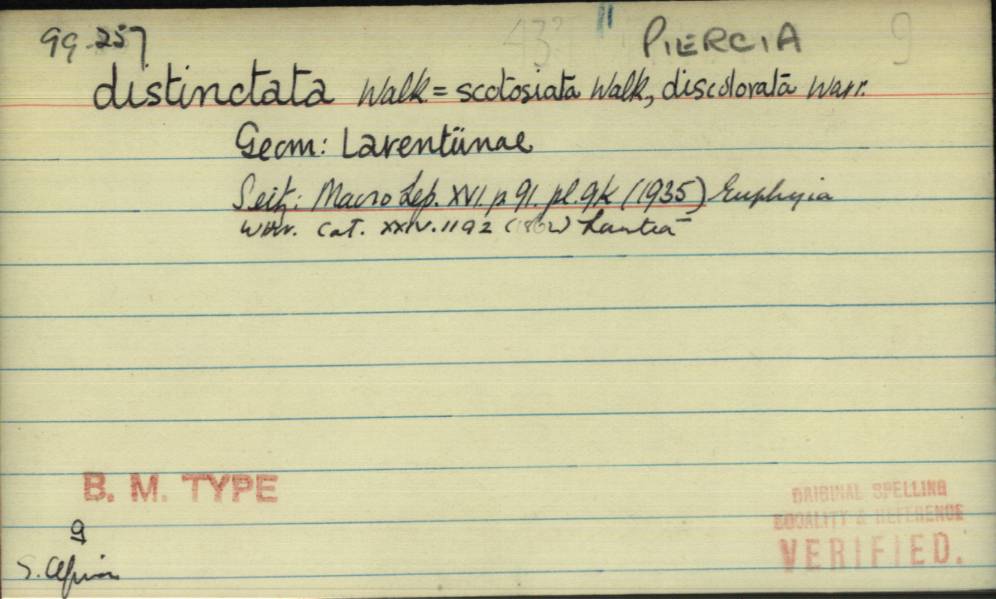 99-257 43? 11 PIERCIA 9
distinctata Walk = scotosiata Walk, discolorata Warr.
Geom: Larentiinae
Seitz: Macro Lep. XVI. p 91. pl. 9k (1935) Euphyia
Cat. XXIV. 1192 (1862)
B. M. TYPE
ORIGINAL SPELLING
LOCALITY & REFERENCE
VERIFIED.
♀
S. Africa